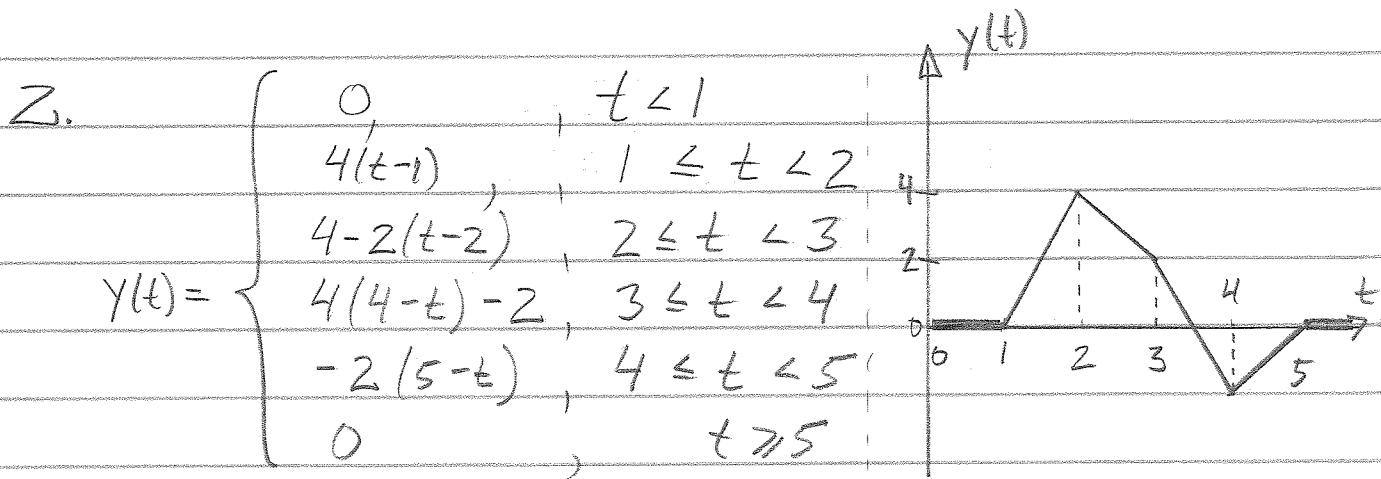 2.
y(t) =
0, , t < 1
4(t-1), , 1 ≤ t < 2
4-2(t-2), 2 ≤ t < 3
4(4-t)-2, 3 ≤ t < 4
-2(5-t), 4 ≤ t < 5
0, t ≥ 5
y(t)
4
2
0
0 1 2 3 4 5
t